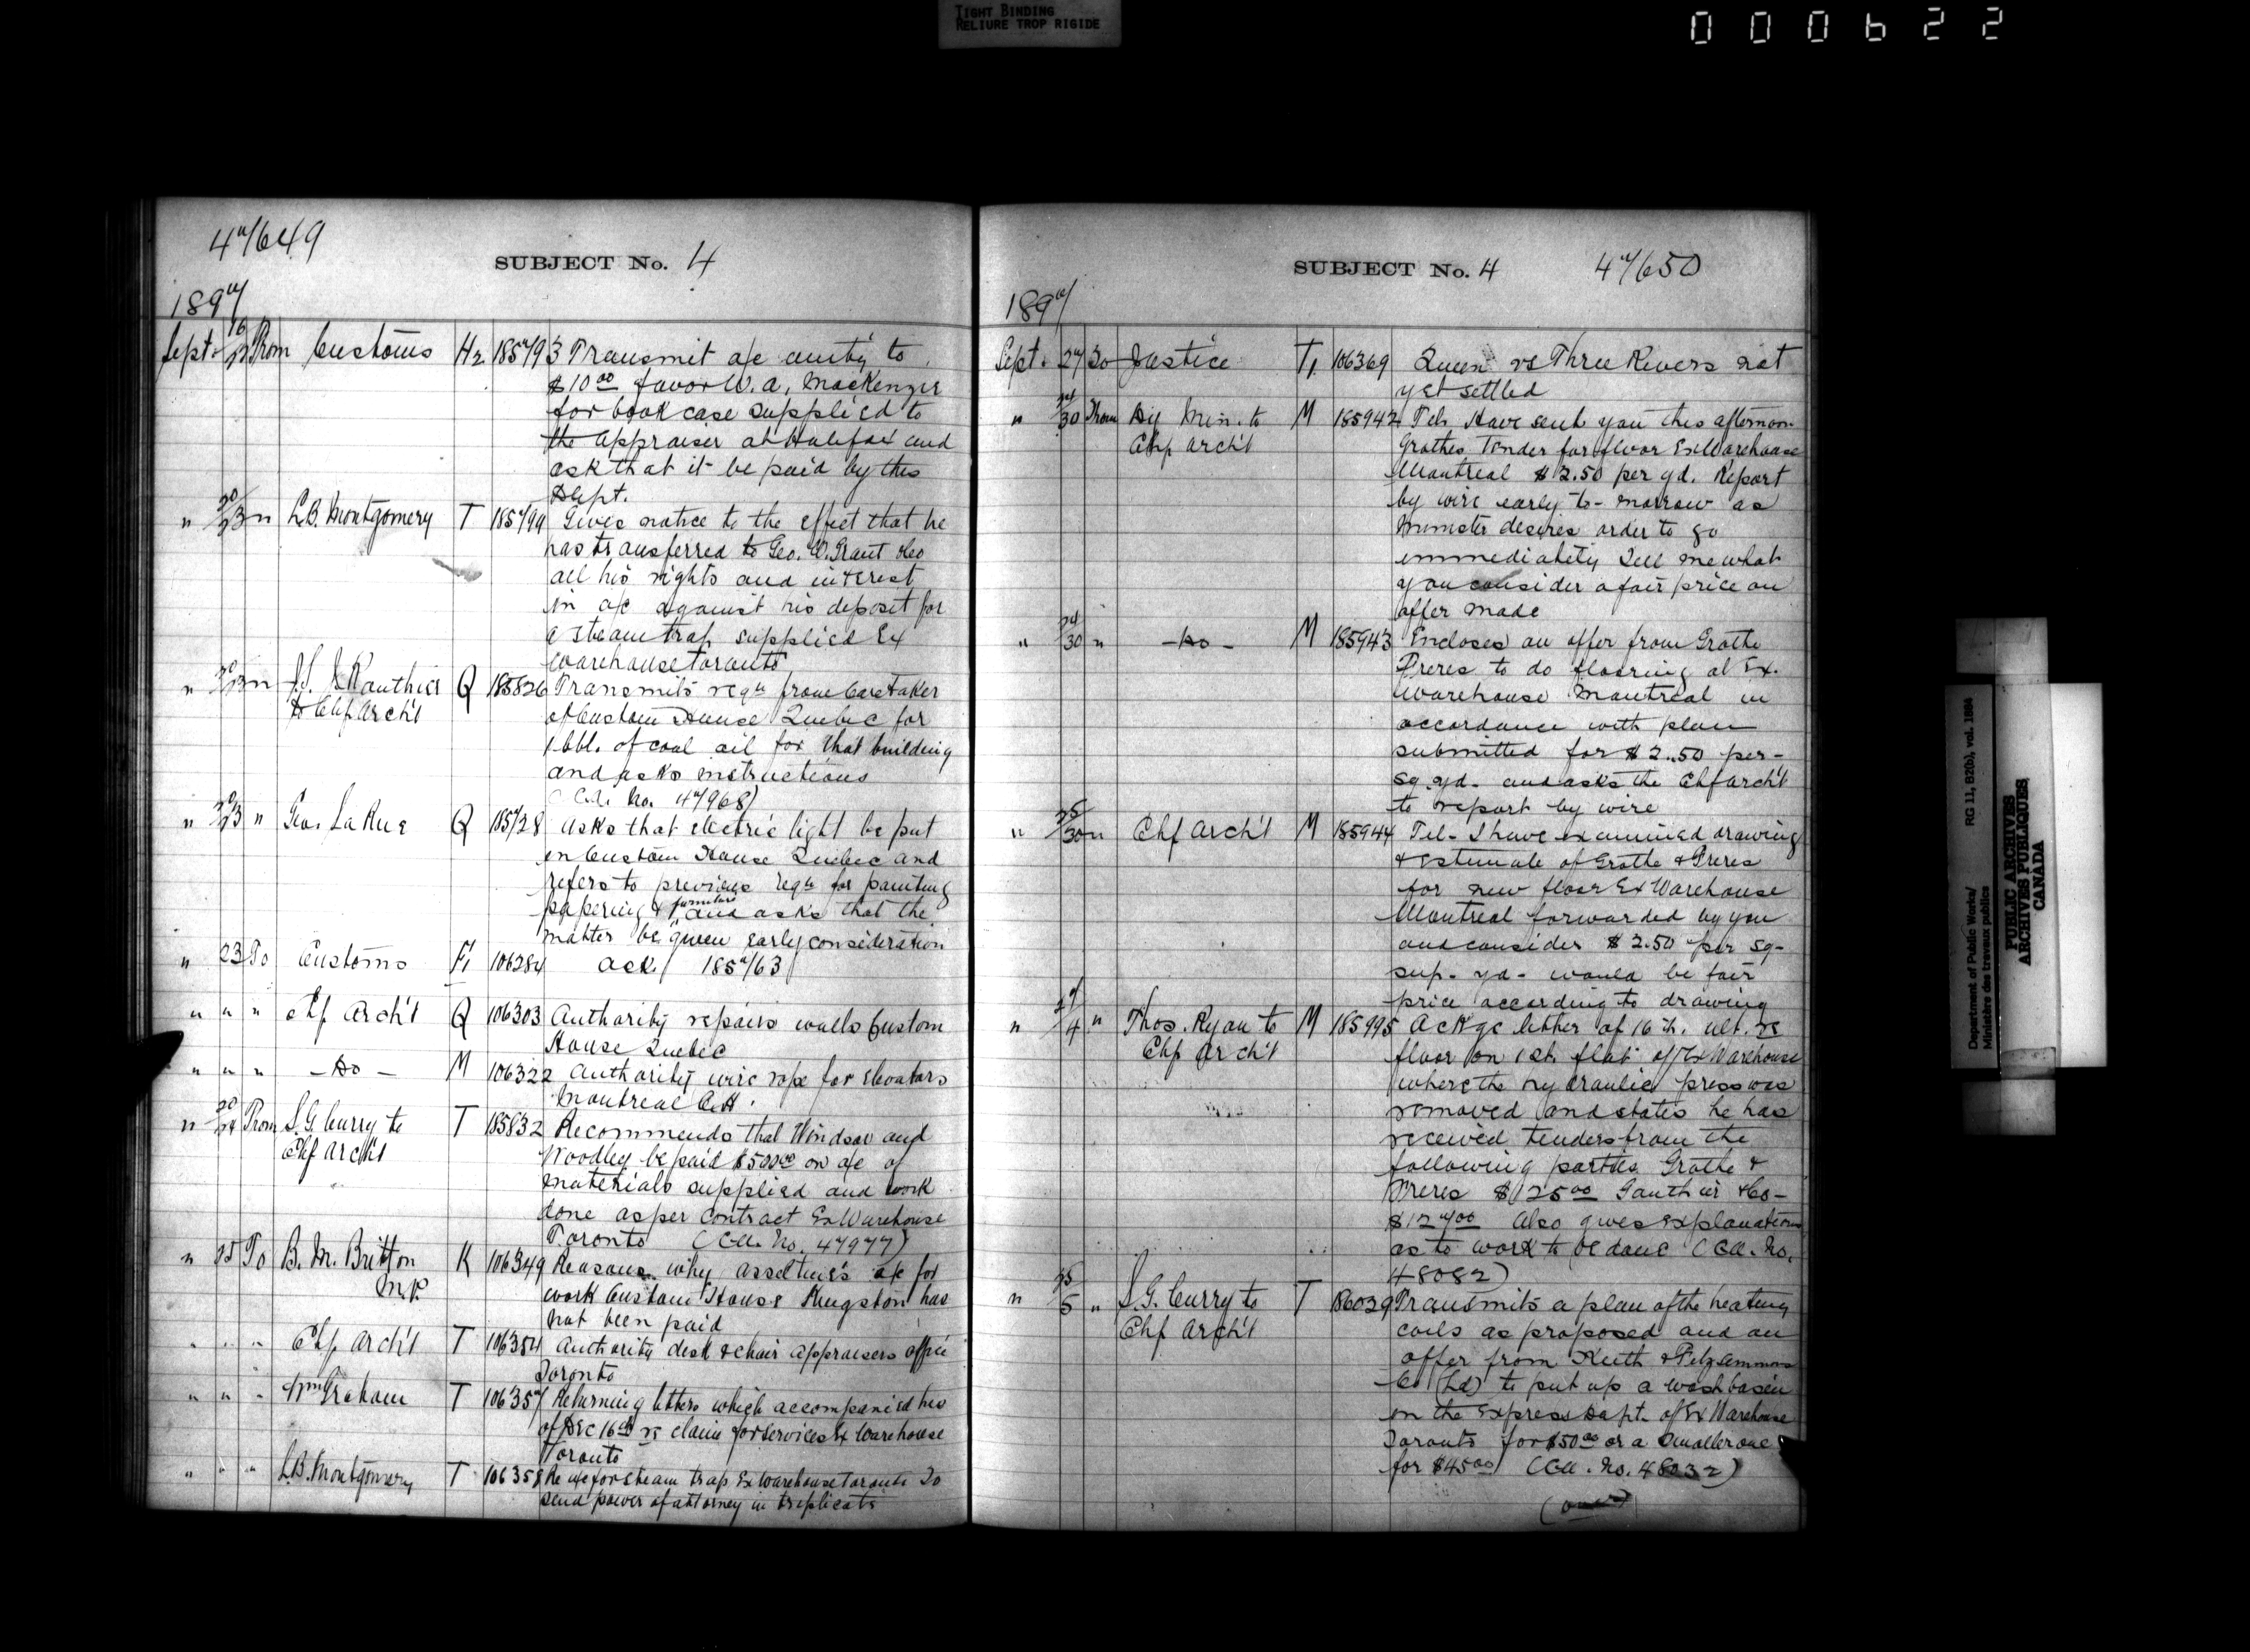 TIGHT BINDING
RELIURE TROP RIGIDE
000622
47/649
SUBJECT No. 4
1897
Sept. 16/22 From Customs H2 185793 Transmit a/c amtg to
$10.00 favor W. A. MacKenzie
for book case supplied to
the appraiser at Halifax and
ask that it be paid by this
Dept.
" 20/23 " L.B. Montgomery T 185799 Gives notice to the effect that he
has transferred to Geo. W. Grant &co
all his rights and interest
in a/c against his deposit for
a steam trap supplied Ex
warehouse Toronto
" 20/23 " Gauthier Q 185826 Transmits reqn from Caretaker
to Chf Arch't of Custom House Quebec for
1 bbl. of coal oil for that building
and asks instructions
(C.A. No. 47968)
" 20/23 " Geo. LaRue Q 185728 Asks that electric light be put
in Custom House Quebec and
refers to previous reqn for painting
papering & furniture and asks that the
matter be given early consideration
" 23 To Customs F1 106284 Ack/ 185763
" " " Chf Arch't Q 106303 Authority repairs walls Custom
House Quebec
" " " - Do - M 106322 Authority wire rope for elevators
Montreal C.H.
" 20/24 From S.G. Curry to T 185832 Recommends that Windsor and
Chf Arch't Woodley be paid $500.00 on a/c of
materials supplied and work
done as per contract Ex Warehouse
Toronto (C.A. No. 47977)
" 25 To B. M. Britton K 106349 Reasons why a/c for
M.P. work Custom House Kingston has
not been paid
" " " Chf Arch't T 106354 Authority desk & chair appraisers office
Toronto
" " " Wm Graham T 106357 Returning letters which accompanied his
of Dec 16th re claim for services Ex Warehouse
Toronto
" " " L.B. Montgomery T 106358 Re a/c for steam trap Ex Warehouse Toronto To
send power of attorney in triplicate
SUBJECT No. 4 47/650
1897
Sept. 27 To Justice T1 106369 Queen vs Three Rivers not
yet settled
" 24/30 From Dy Min. to M 185942 Tel. Have sent you this afternoon
Chf Arch't Grothes Tender for floor Ex Warehouse
Montreal $2.50 per yd. Report
by wire early to-morrow as
Minister desires order to go
immediately Tell me what
you consider a fair price on
offer made
" 24/30 " - Do - M 185943 Encloses an offer from Grothe
Freres to do flooring at Ex.
Warehouse Montreal in
accordance with plan
submitted for $2.50 per
sq. yd. and asks the Chf Arch't
to report by wire
" 25/30 " Chf Arch't M 185944 Tel- I have examined drawing
& estimate of Grothe & Freres
for new floor Ex Warehouse
Montreal forwarded by you
and consider $2.50 per sq-
sup- yd- would be fair
price according to drawing
" 27/4 " Thos. Ryan to M 185995 Ackge letter of 16th. ult. re
Chf Arch't floor on 1st. flat of Ex Warehouse
where the hydraulic press was
removed and states he has
received tenders from the
following parties Grothe &
Freres $125.00 Gauthier & Co-
$127.00 Also gives explanations
as to work to be done (C.A. No.
48082)
" 25/5 " S.G. Curry to T 186039 Transmits a plan of the heating
Chf Arch't coils as proposed and an
offer from Keith & Fitzsimmons
Co (Ld) to put up a wash basin
in the Express Dept. of Ex Warehouse
Toronto for $50.00 or a smaller one
for $45.00 (C.A. No. 48032)
(over)
Department of Public Works/
Ministère des travaux publics
RG 11, B2(b), vol. 1884
PUBLIC ARCHIVES
ARCHIVES PUBLIQUES
CANADA